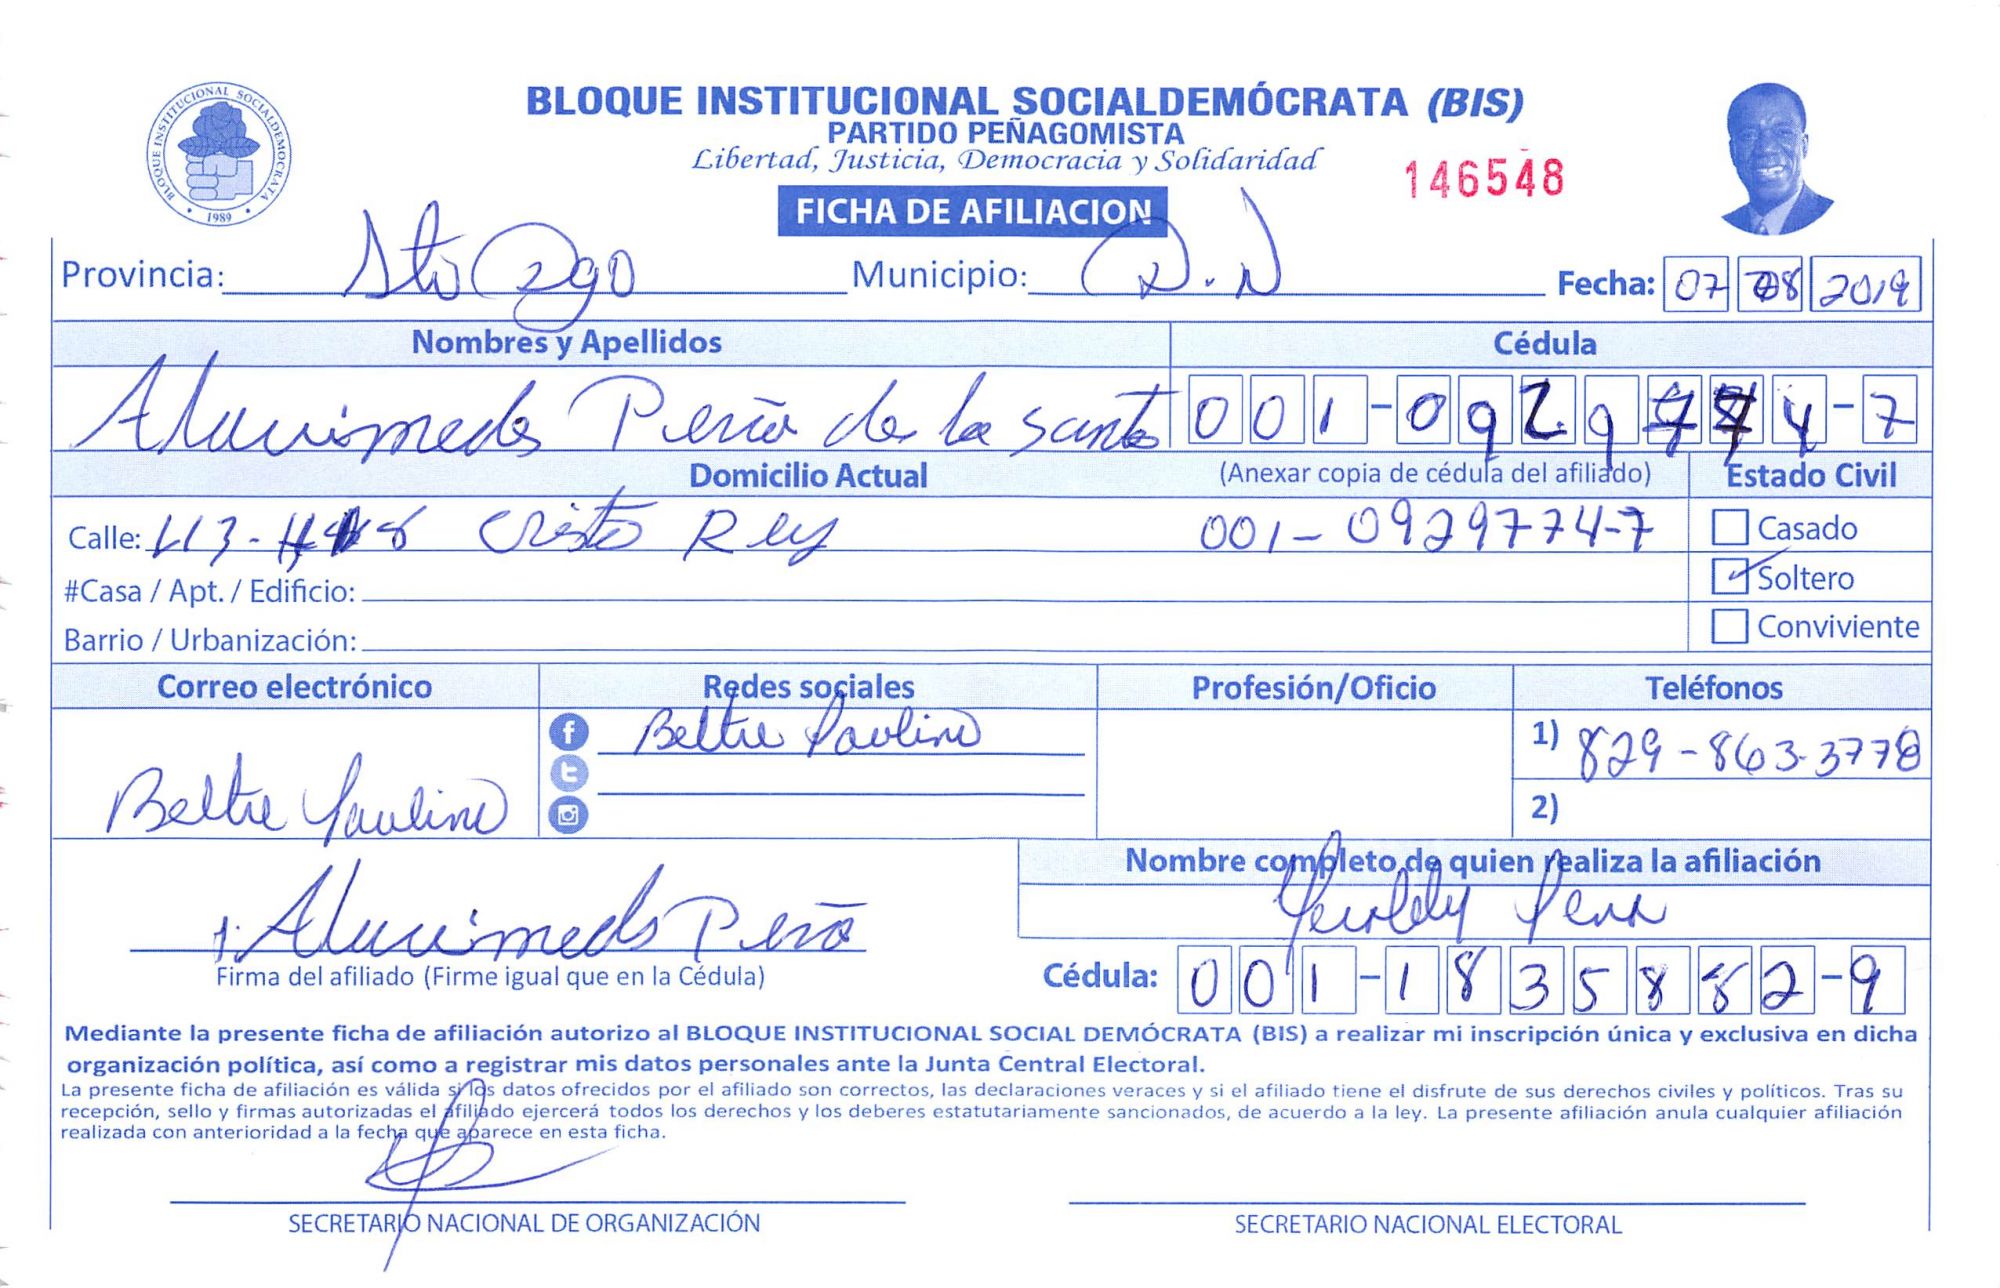 BLOQUE INSTITUCIONAL SOCIALDEMÓCRATA (BIS)
PARTIDO PEÑAGOMISTA
Libertad, Justicia, Democracia y Solidaridad
146548
BLOQUE INSTITUCIONAL SOCIALDEMOCRATA
• 1989 •
FICHA DE AFILIACION
Provincia: Sto Dgo Municipio: D.N Fecha: 07 08 2019
Nombres y Apellidos Cédula
Peña de la Santo 001-0929774-7
Domicilio Actual (Anexar copia de cédula del afiliado) Estado Civil
Calle: Cristo Rey 001-0929774-7 Casado
#Casa / Apt. / Edificio: Soltero
Barrio / Urbanización: Conviviente
Correo electrónico Redes sociales Profesión/Oficio Teléfonos
Beltre Paulino 1) 829-863-3778
Beltre Paulino 2)
Nombre completo de quien realiza la afiliación
Peña
Firma del afiliado (Firme igual que en la Cédula)
Cédula: 001-1835882-9
Mediante la presente ficha de afiliación autorizo al BLOQUE INSTITUCIONAL SOCIAL DEMÓCRATA (BIS) a realizar mi inscripción única y exclusiva en dicha
organización política, así como a registrar mis datos personales ante la Junta Central Electoral.
La presente ficha de afiliación es válida si los datos ofrecidos por el afiliado son correctos, las declaraciones veraces y si el afiliado tiene el disfrute de sus derechos civiles y políticos. Tras su
recepción, sello y firmas autorizadas el afiliado ejercerá todos los derechos y los deberes estatutariamente sancionados, de acuerdo a la ley. La presente afiliación anula cualquier afiliación
realizada con anterioridad a la fecha que aparece en esta ficha.
SECRETARIO NACIONAL DE ORGANIZACIÓN SECRETARIO NACIONAL ELECTORAL